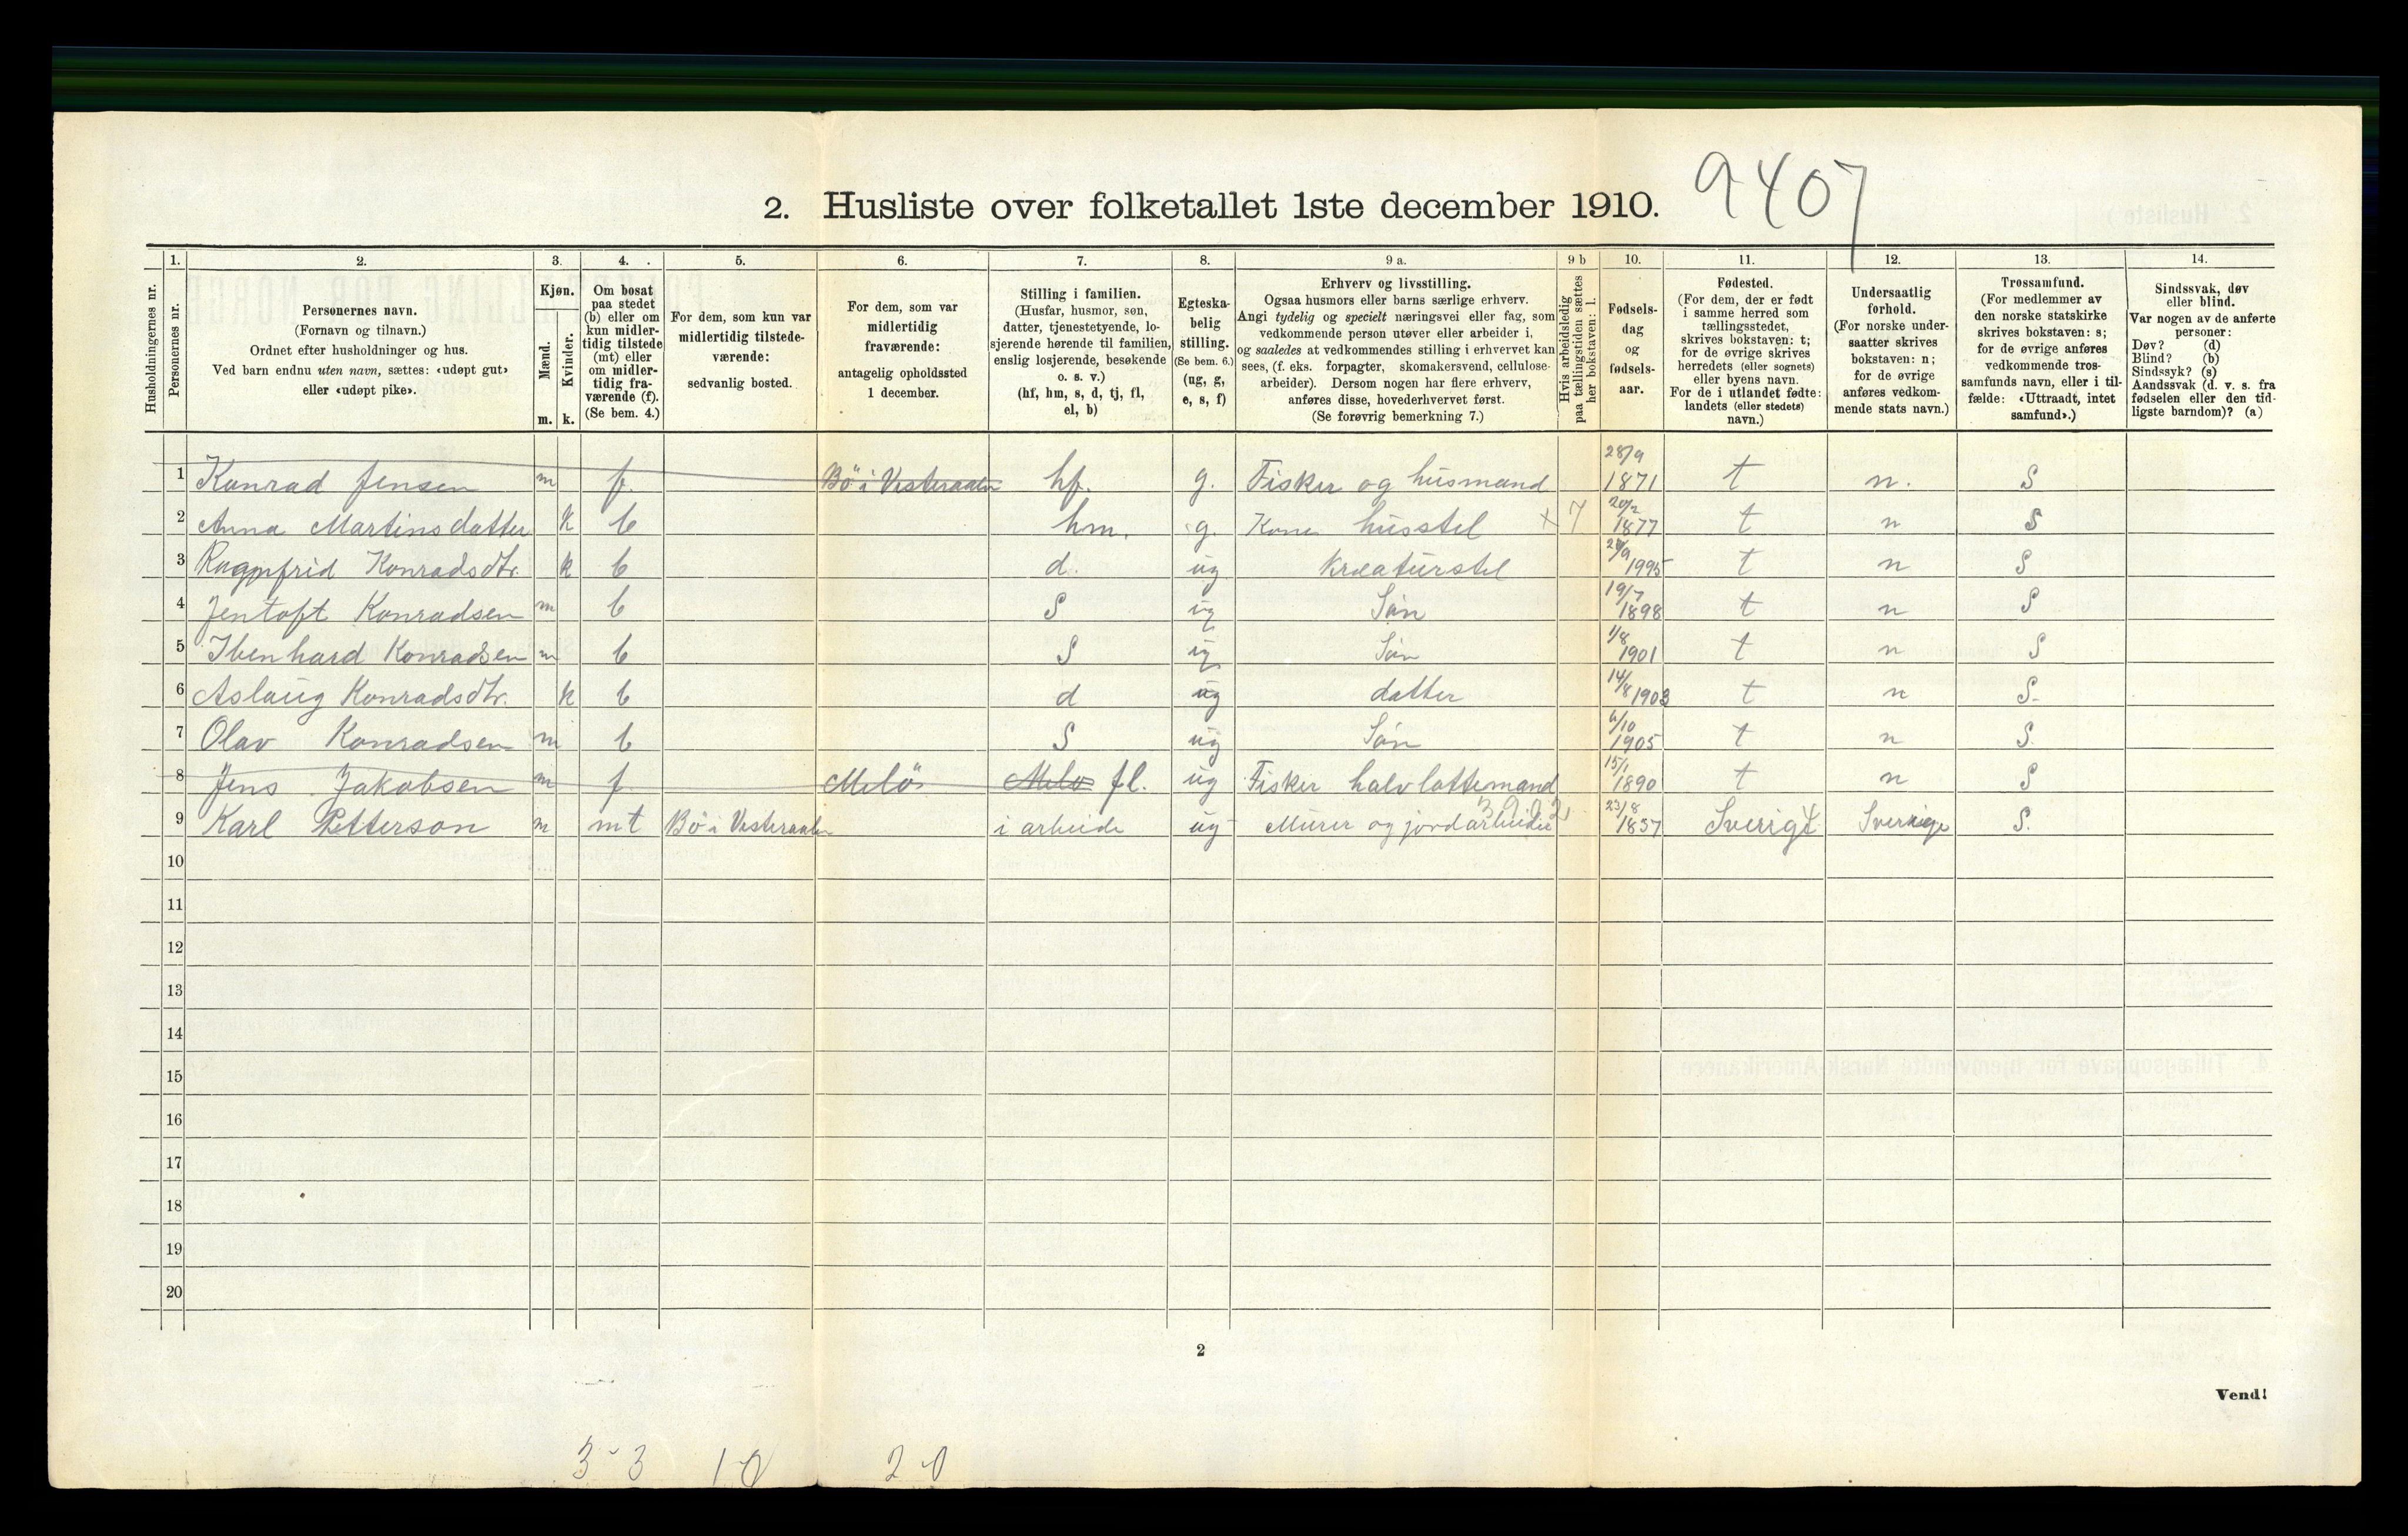 9407
2. Husliste over folketallet 1ste december 1910.
Husholdningernes nr.
1. Personernes nr.
2. Personernes navn. (Fornavn og tilnavn.) Ordnet efter husholdninger og hus. Ved barn endnu uten navn, sættes: «udøpt gut» eller «udøpt pike».
3. Kjøn. Mænd. m. Kvinder. k.
4. Om bosat paa stedet (b) eller om kun midlertidig tilstede (mt) eller om midlertidig fraværende (f). (Se bem. 4.)
5. For dem, som kun var midlertidig tilstedeværende: sedvanlig bosted.
6. For dem, som var midlertidig fraværende: antagelig opholdssted 1 december.
7. Stilling i familien. (Husfar, husmor, søn, datter, tjenestetyende, losjerende hørende til familien, enslig losjerende, besøkende o. s. v.) (hf, hm, s, d, tj, fl, el, b)
8. Egteskabelig stilling. (Se bem. 6.) (ug, g, e, s, f)
9 a. Erhverv og livsstilling. Ogsaa husmors eller barns særlige erhverv. Angi tydelig og specielt næringsvei eller fag, som vedkommende person utøver eller arbeider i, og saaledes at vedkommendes stilling i erhvervet kan sees, (f. eks. forpagter, skomakersvend, cellulose-arbeider). Dersom nogen har flere erhverv, anføres disse, hovederhvervet først. (Se forøvrig bemerkning 7.)
9 b Hvis arbeidsledig paa tællingstiden sættes her bokstaven: l.
10. Fødselsdag og fødselsaar.
11. Fødested. (For dem, der er født i samme herred som tællingsstedet, skrives bokstaven: t; for de øvrige skrives herredets (eller sognets) eller byens navn. For de i utlandet fødte: landets (eller stedets) navn.)
12. Undersaatlig forhold. (For norske undersaatter skrives bokstaven: n; for de øvrige anføres vedkommende stats navn.)
13. Trossamfund. (For medlemmer av den norske statskirke skrives bokstaven: s; for de øvrige anføres vedkommende trossamfunds navn, eller i tilfælde: «Uttraadt, intet samfund».)
14. Sindssvak, døv eller blind. Var nogen av de anførte personer: Døv? (d) Blind? (b) Sindssyk? (s) Aandssvak (d. v. s. fra fødselen eller den tidligste barndom)? (a)
1 Konrad Jensen m f. Bö i Vesteraalen hf. g. Fisker og husmand 28/9 1871 t n. S
2 Anna Martinsdatter k b hm. g. Kone husstel x 7 20/2 1877 t n S
3 Ragnfrid Konradsdtr. k b d. ug Kreaturstel 1995 t n S
4 Jentoft Konradsen m b S ug Sön 19/7 1898 t n S
5 Ibenhard Konradsen m b S ug Sön 1/8 1901 t n S
6 Aslaug Konradsdtr. k b d ug datter 14/8 1903 t n S.
7 Olav Konradsen m b S ug Sön 6/10 1905 t n S.
8 Jens Jakobsen m f Melö Melö fl. ug Fisker halvlottemand 15/1 1890 t n S
9 Karl Petterson m mt Bö i Vesteraalen i arbeide ug Murer og jordarbeider 23/8 1857 Sverige Sverrige S.
10
11
12
13
14
15
16
17
18
19
20
2
Vend!
3-3 1-0 2-0